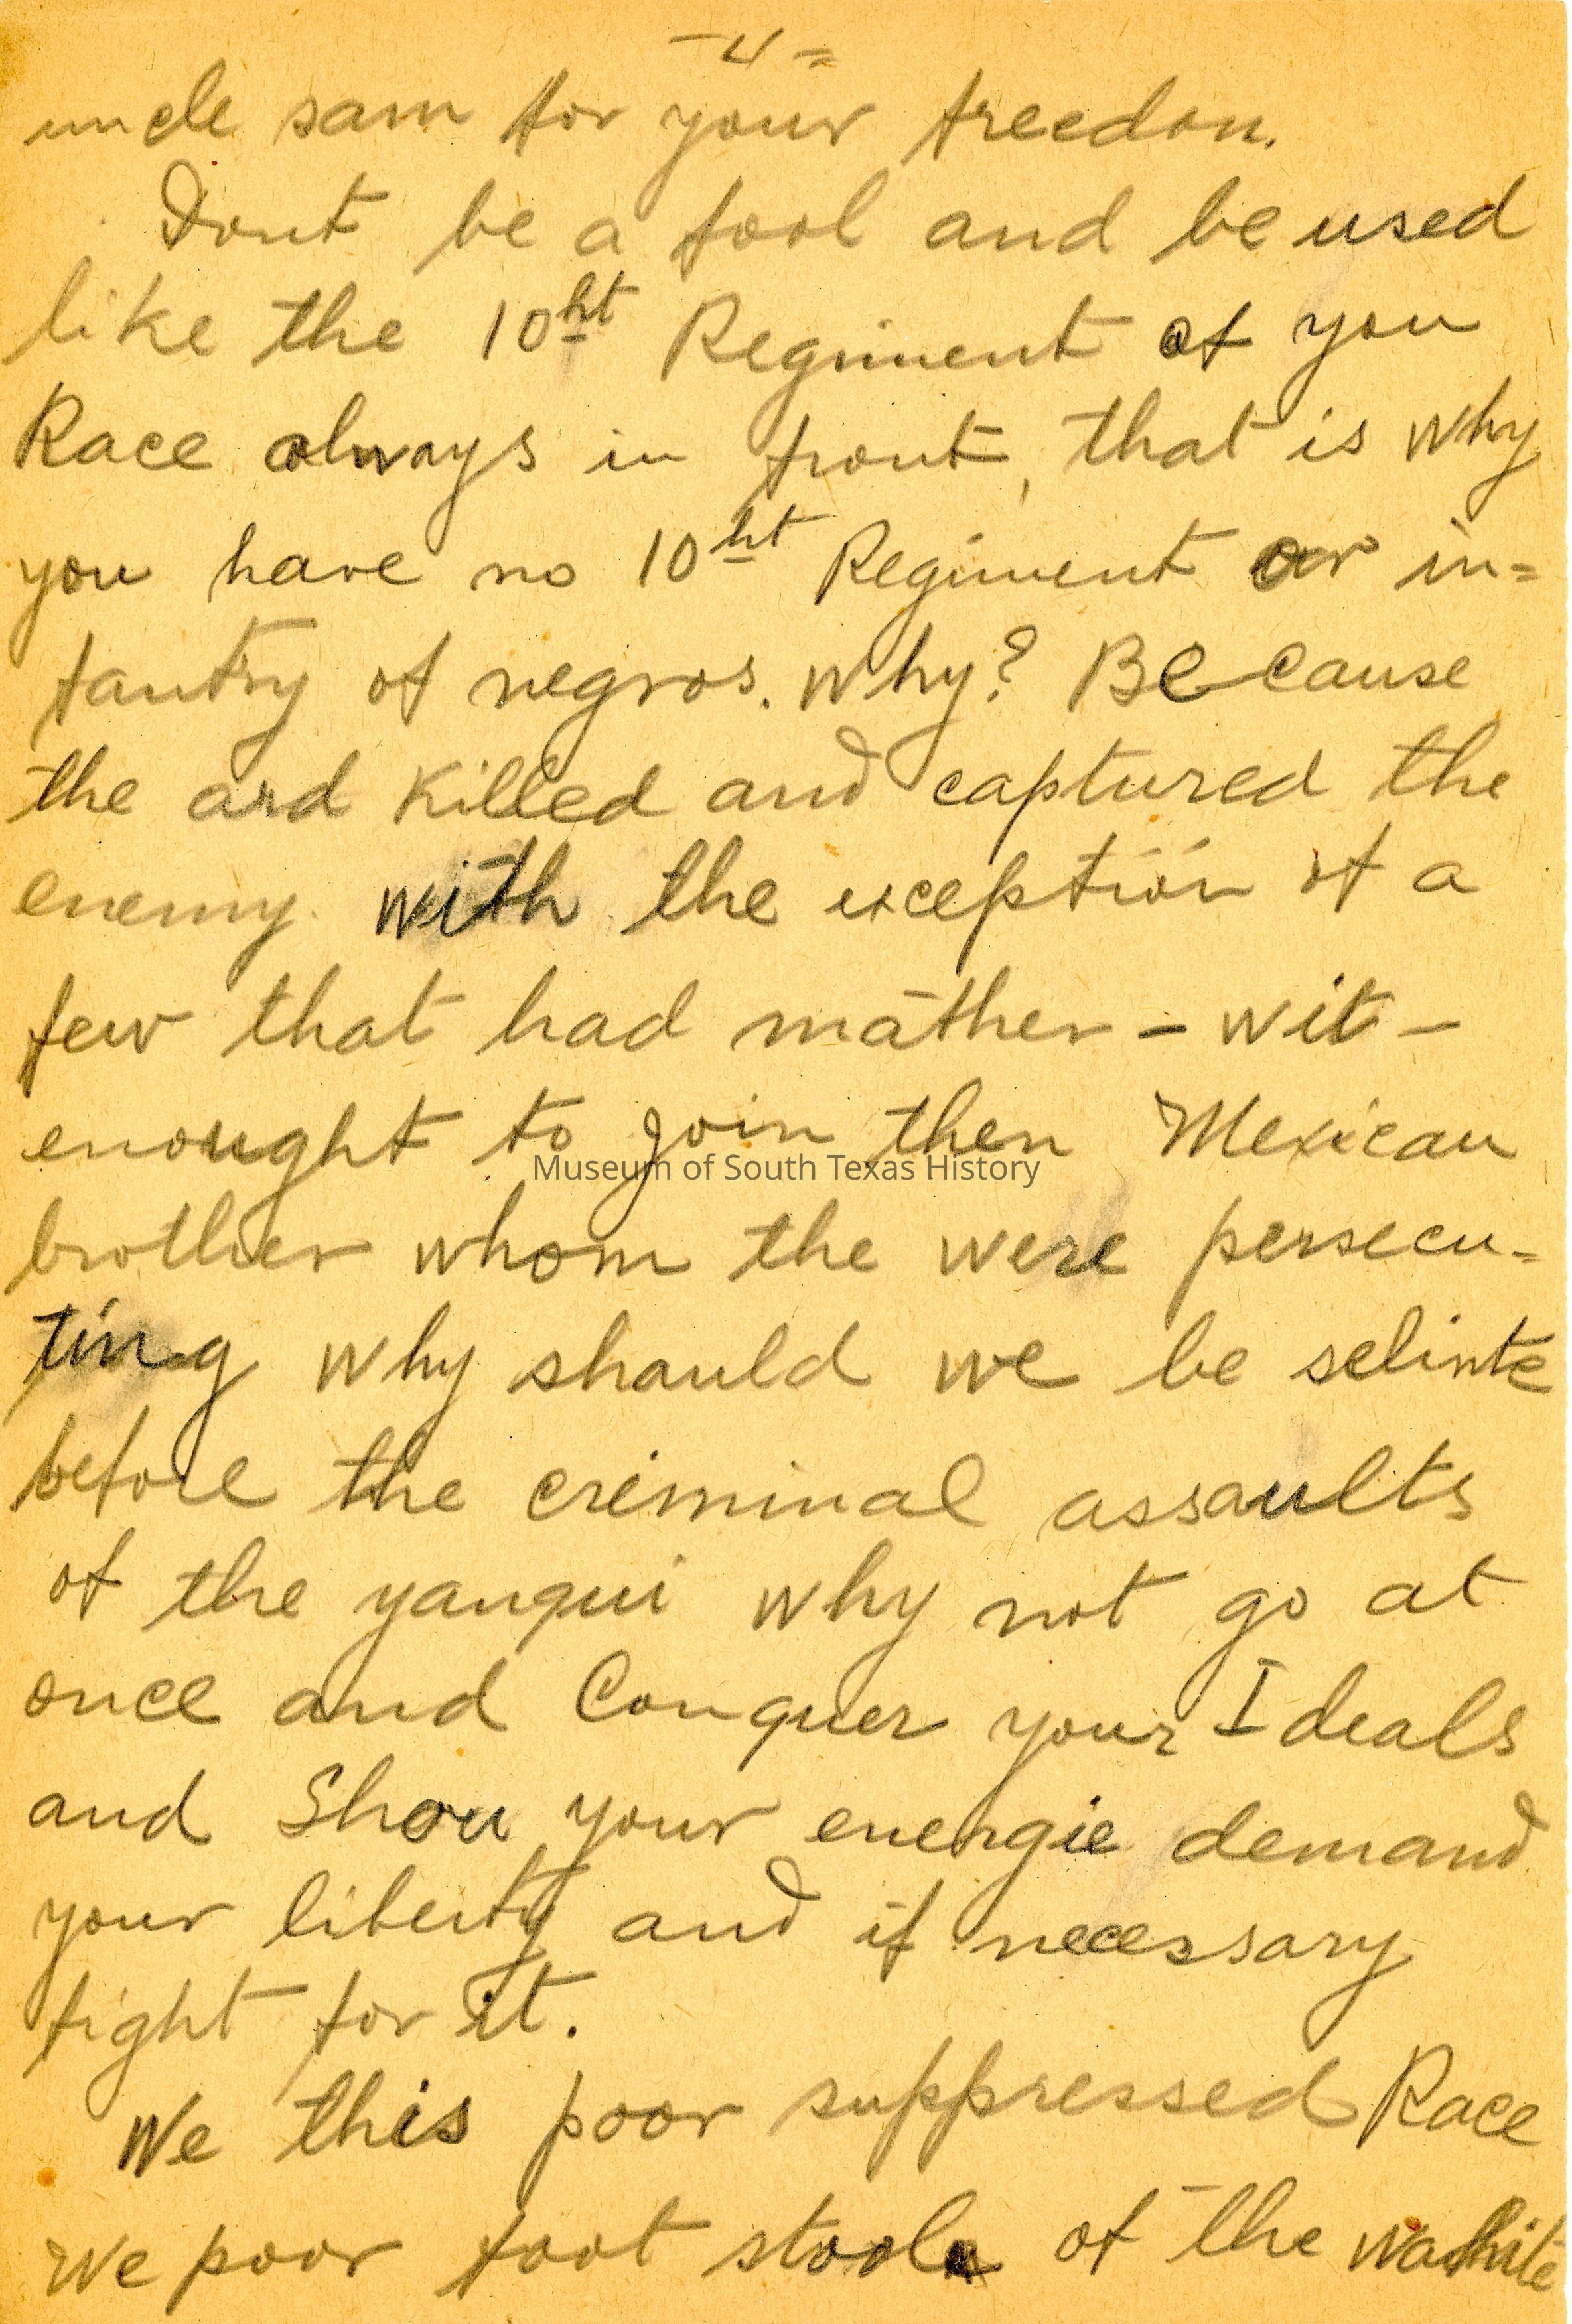 -4-
uncle sam for your freedon.
Dont be a fool and be used
like the 10ht Regiment of you
Race always in front, that is why
you have no 10ht Regiment or in=
fantry of negros. Why? BeCause
the ard killed and captured the
enemy with the exception of a
few that had mather - wit -
enought to join then Mexican
Museum of South Texas History
brother whom the were persecu-
ting why should we be selinte
before the criminal assaults
of the yanqui why not go at
once and Conquer your Ideals
and Shou your energie demand
your liberty and if necessary
fight for it.
We this poor suppressed Race
We poor foot stools of the